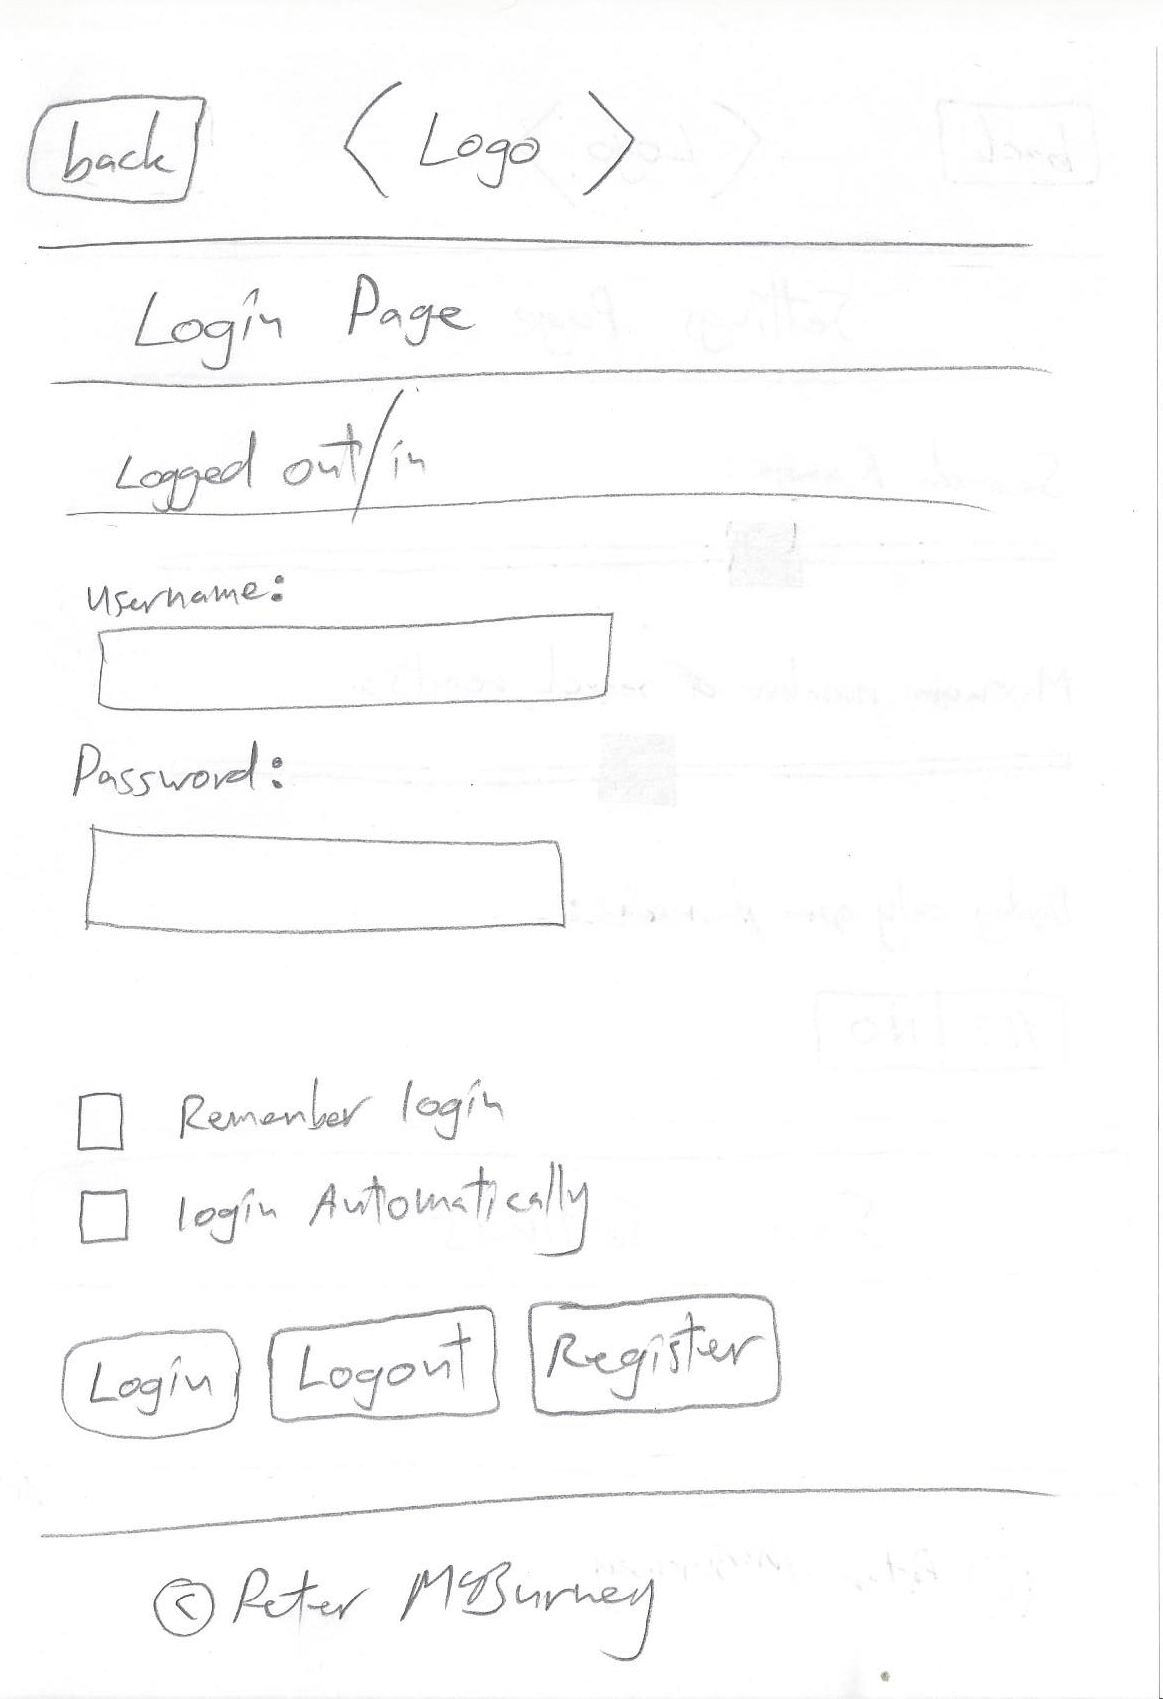 back < Logo >
Login Page
Logged out/in
Username:
Password:
Remember login
login Automatically
Login Logout Register
© Peter McBurney